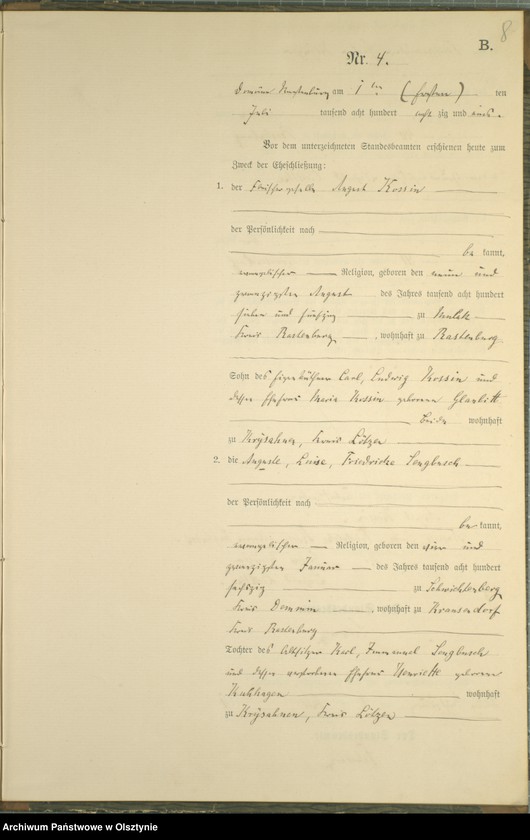 8
B.
Nr. 4.
Domäne Rastenburg am 1 ten (ersten) ten
Juli tausend acht hundert acht zig und eins.
Vor dem unterzeichneten Standesbeamten erschienen heute zum
Zweck der Eheschließung:
1. der August Kossin
der Persönlichkeit nach
be kannt,
evangelischer Religion, geboren den neun und
zwanzigsten August des Jahres tausend acht hundert
sieben und fünfzig zu
Kreis Rastenburg, wohnhaft zu Rastenburg
Sohn des Carl, Ludwig Kossin und
dessen Ehefrau Maria Kossin geborenen Glaubitt
beide wohnhaft
zu Krzysahnen, Kreis Lötzen
2. die Auguste, Luise, Friedricke Sengbusch
der Persönlichkeit nach
be kannt,
evangelischer Religion, geboren den vier und
zwanzigsten Januar des Jahres tausend acht hundert
sechszig zu Schwichtenberg
Kreis Demmin, wohnhaft zu Krausendorf
Kreis Rastenburg
Tochter des Altsitzer Karl, Immanuel Sengbusch
und dessen verstorbenen Ehefrau Henriette geborenen
wohnhaft
zu Krzysahnen, Kreis Lötzen
Archiwum Państwowe w Olsztynie